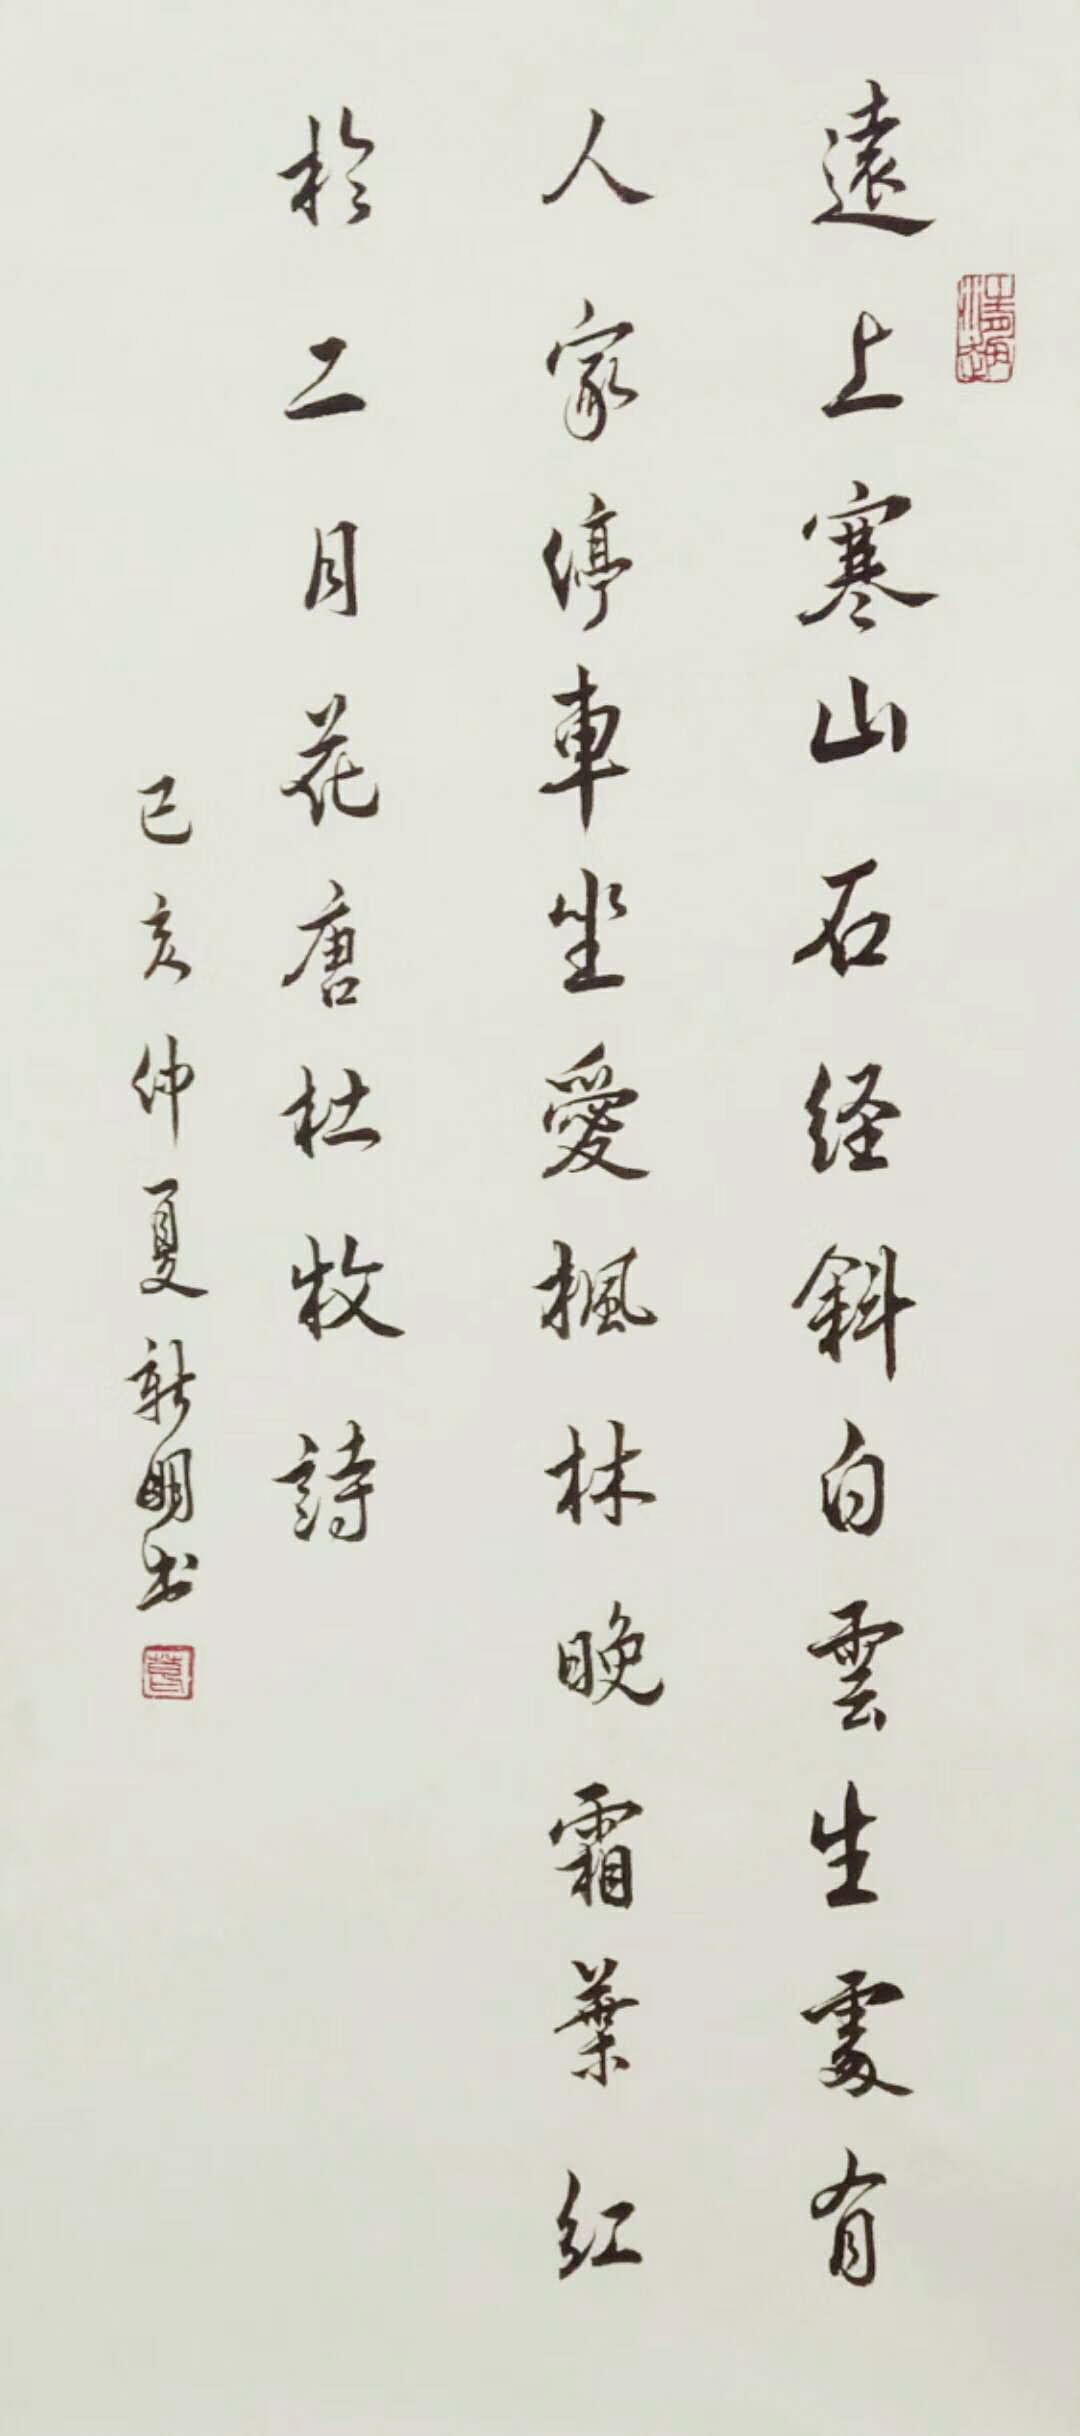 遠上寒山石经斜白雲生處有
人家停車坐愛楓林晚霜葉紅
於二月花唐杜牧詩
己亥仲夏新明书